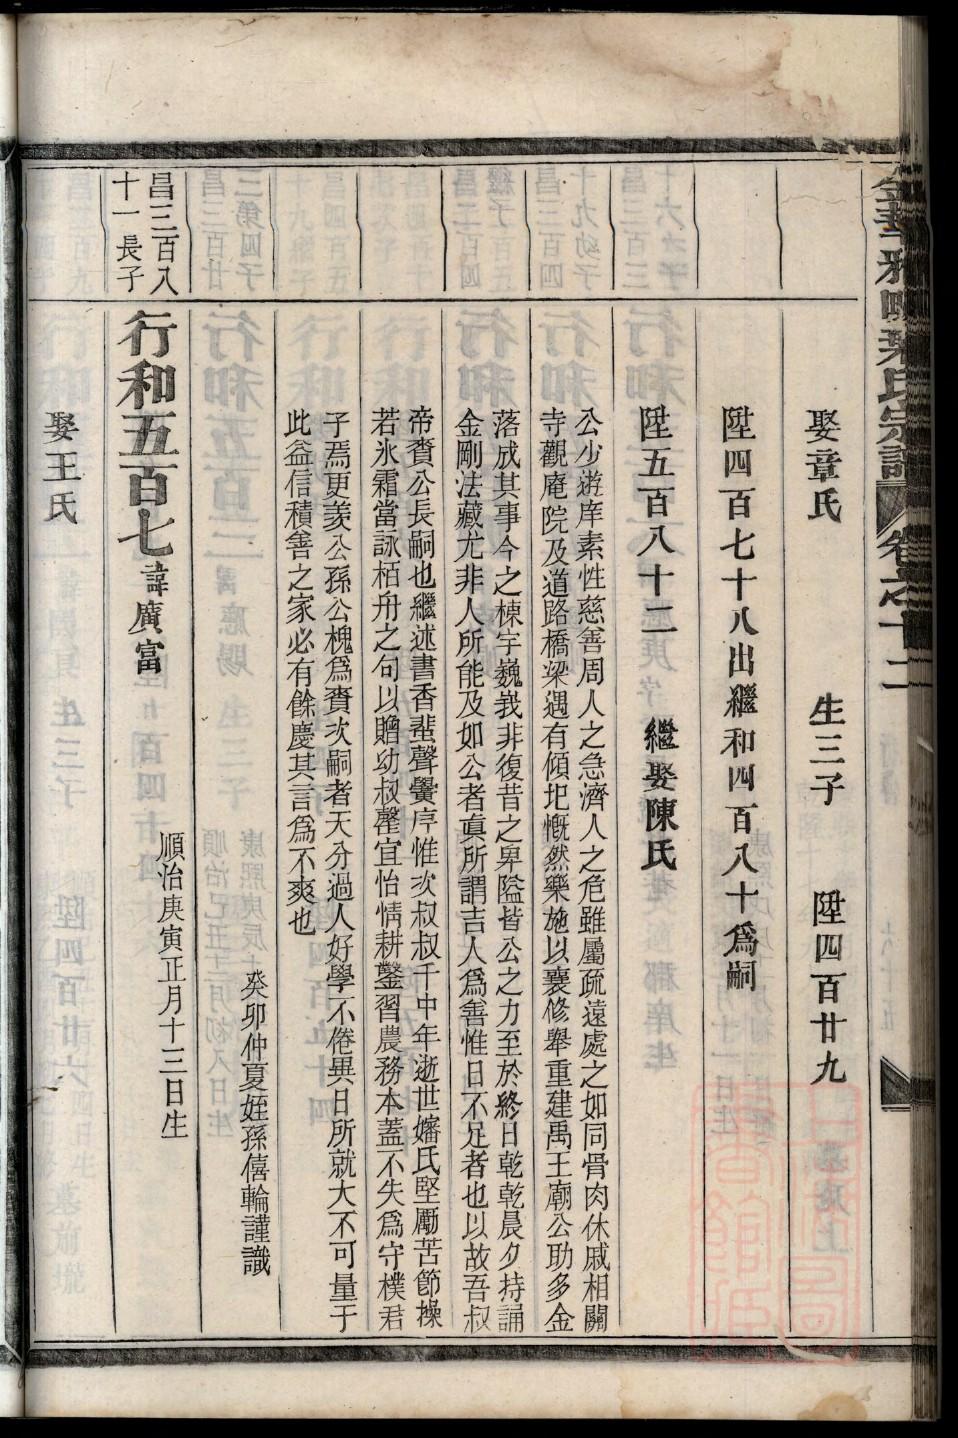 娶章氏 生三子 陞四百廿九
陞四百七十八出繼和四百八十爲嗣
陞五百八十二 繼娶陳氏
公少遊庠素性慈善周人之急濟人之危雖屬疏遠處之如同骨肉休戚相關
寺觀庵院及道路橋梁遇有傾圮慨然樂施以襄修舉重建禹王廟公助多金
落成其事今之棟宇巍峩非復昔之卑隘皆公之力至於終日乾乾晨夕持誦
金剛法藏尤非人所能及如公者眞所謂吉人爲善惟日不足者也以故吾叔
帝賚公長嗣也繼述書香蜚聲黌序惟次叔叔千中年逝世嬸氏堅勵苦節操
若氷霜當詠栢舟之句以贈幼叔罄宜怡情耕鑿習農務本蓋不失爲守樸君
子焉更羨公孫公槐爲賚次嗣者天分過人好學不倦異日所就大不可量于
此益信積善之家必有餘慶其言爲不爽也
癸卯仲夏姪孫僖輪謹識
昌三百八
十一長子
行和五百七諱廣富
順治庚寅正月十三日生
娶王氏